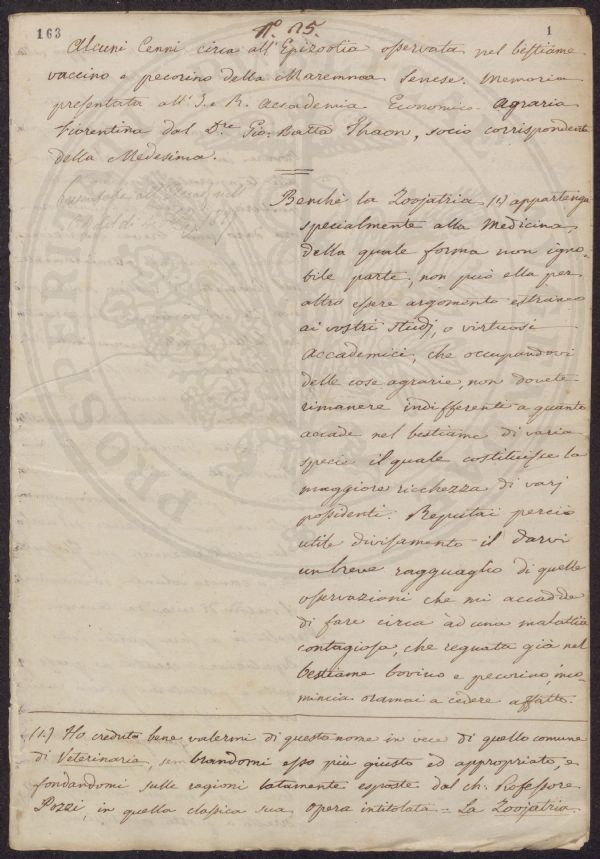 163
N.° 25.
1
Alcuni Cenni circa all'Epizootia osservata nel bestiame
vaccino e pecorino della Maremma Senese. Memoria
presentata all'I. e R. Accademia Economico-Agraria
fiorentina dal D.re Gio: Batta Thaon, socio corrispondente
della Medesima.
Benchè la Zoojatria (1.) appartenga
specialmente alla Medicina,
della quale forma non igno-
bile parte, non può ella per
altro essere argomento estraneo
ai vostri studj, o virtuosi
Accademici, che occupandovi
delle cose agrarie, non dovete
rimanere indifferenti a quanto
accade nel bestiame di varia
specie il quale costituisce la
maggiore ricchezza di varj
possidenti. Reputai perciò
utile divisamento il darvi
un breve ragguaglio di quelle
osservazioni che mi accadde
di fare circa ad una malattia
contagiosa, che regnata già nel
bestiame bovino e pecorino, inco-
mincia oramai a cedere affatto.
(1.) Ho creduto bene valermi di questo nome in vece di quello comune
di Veterinaria, sembrandomi esso più giusto ed appropriato, e
fondandomi sulle ragioni latamente esposte dal ch. Professore
Pozzi, in quella classica sua opera intitolata = La Zoojatria.